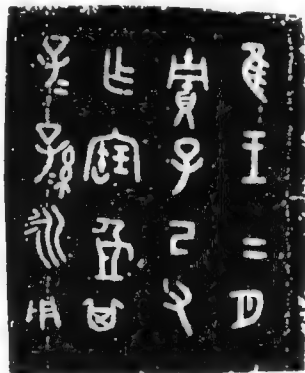 隹王二月
貯子己父
乍寶盉其
子子孫永用